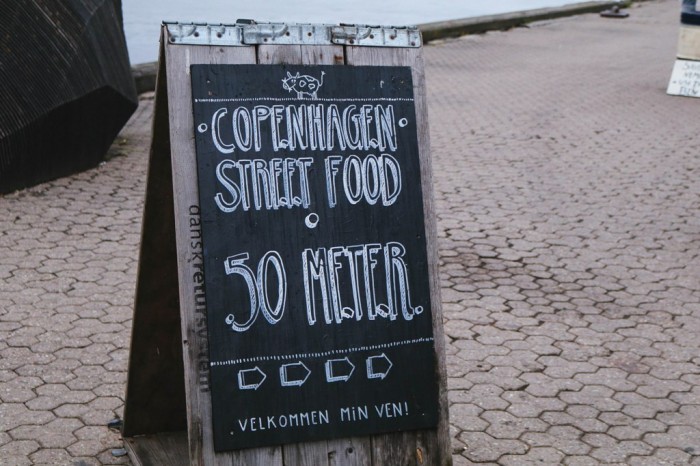 COPENHAGEN
STREET FOOD
50 METER
VELKOMMEN MIN VEN!
dansk retursystem